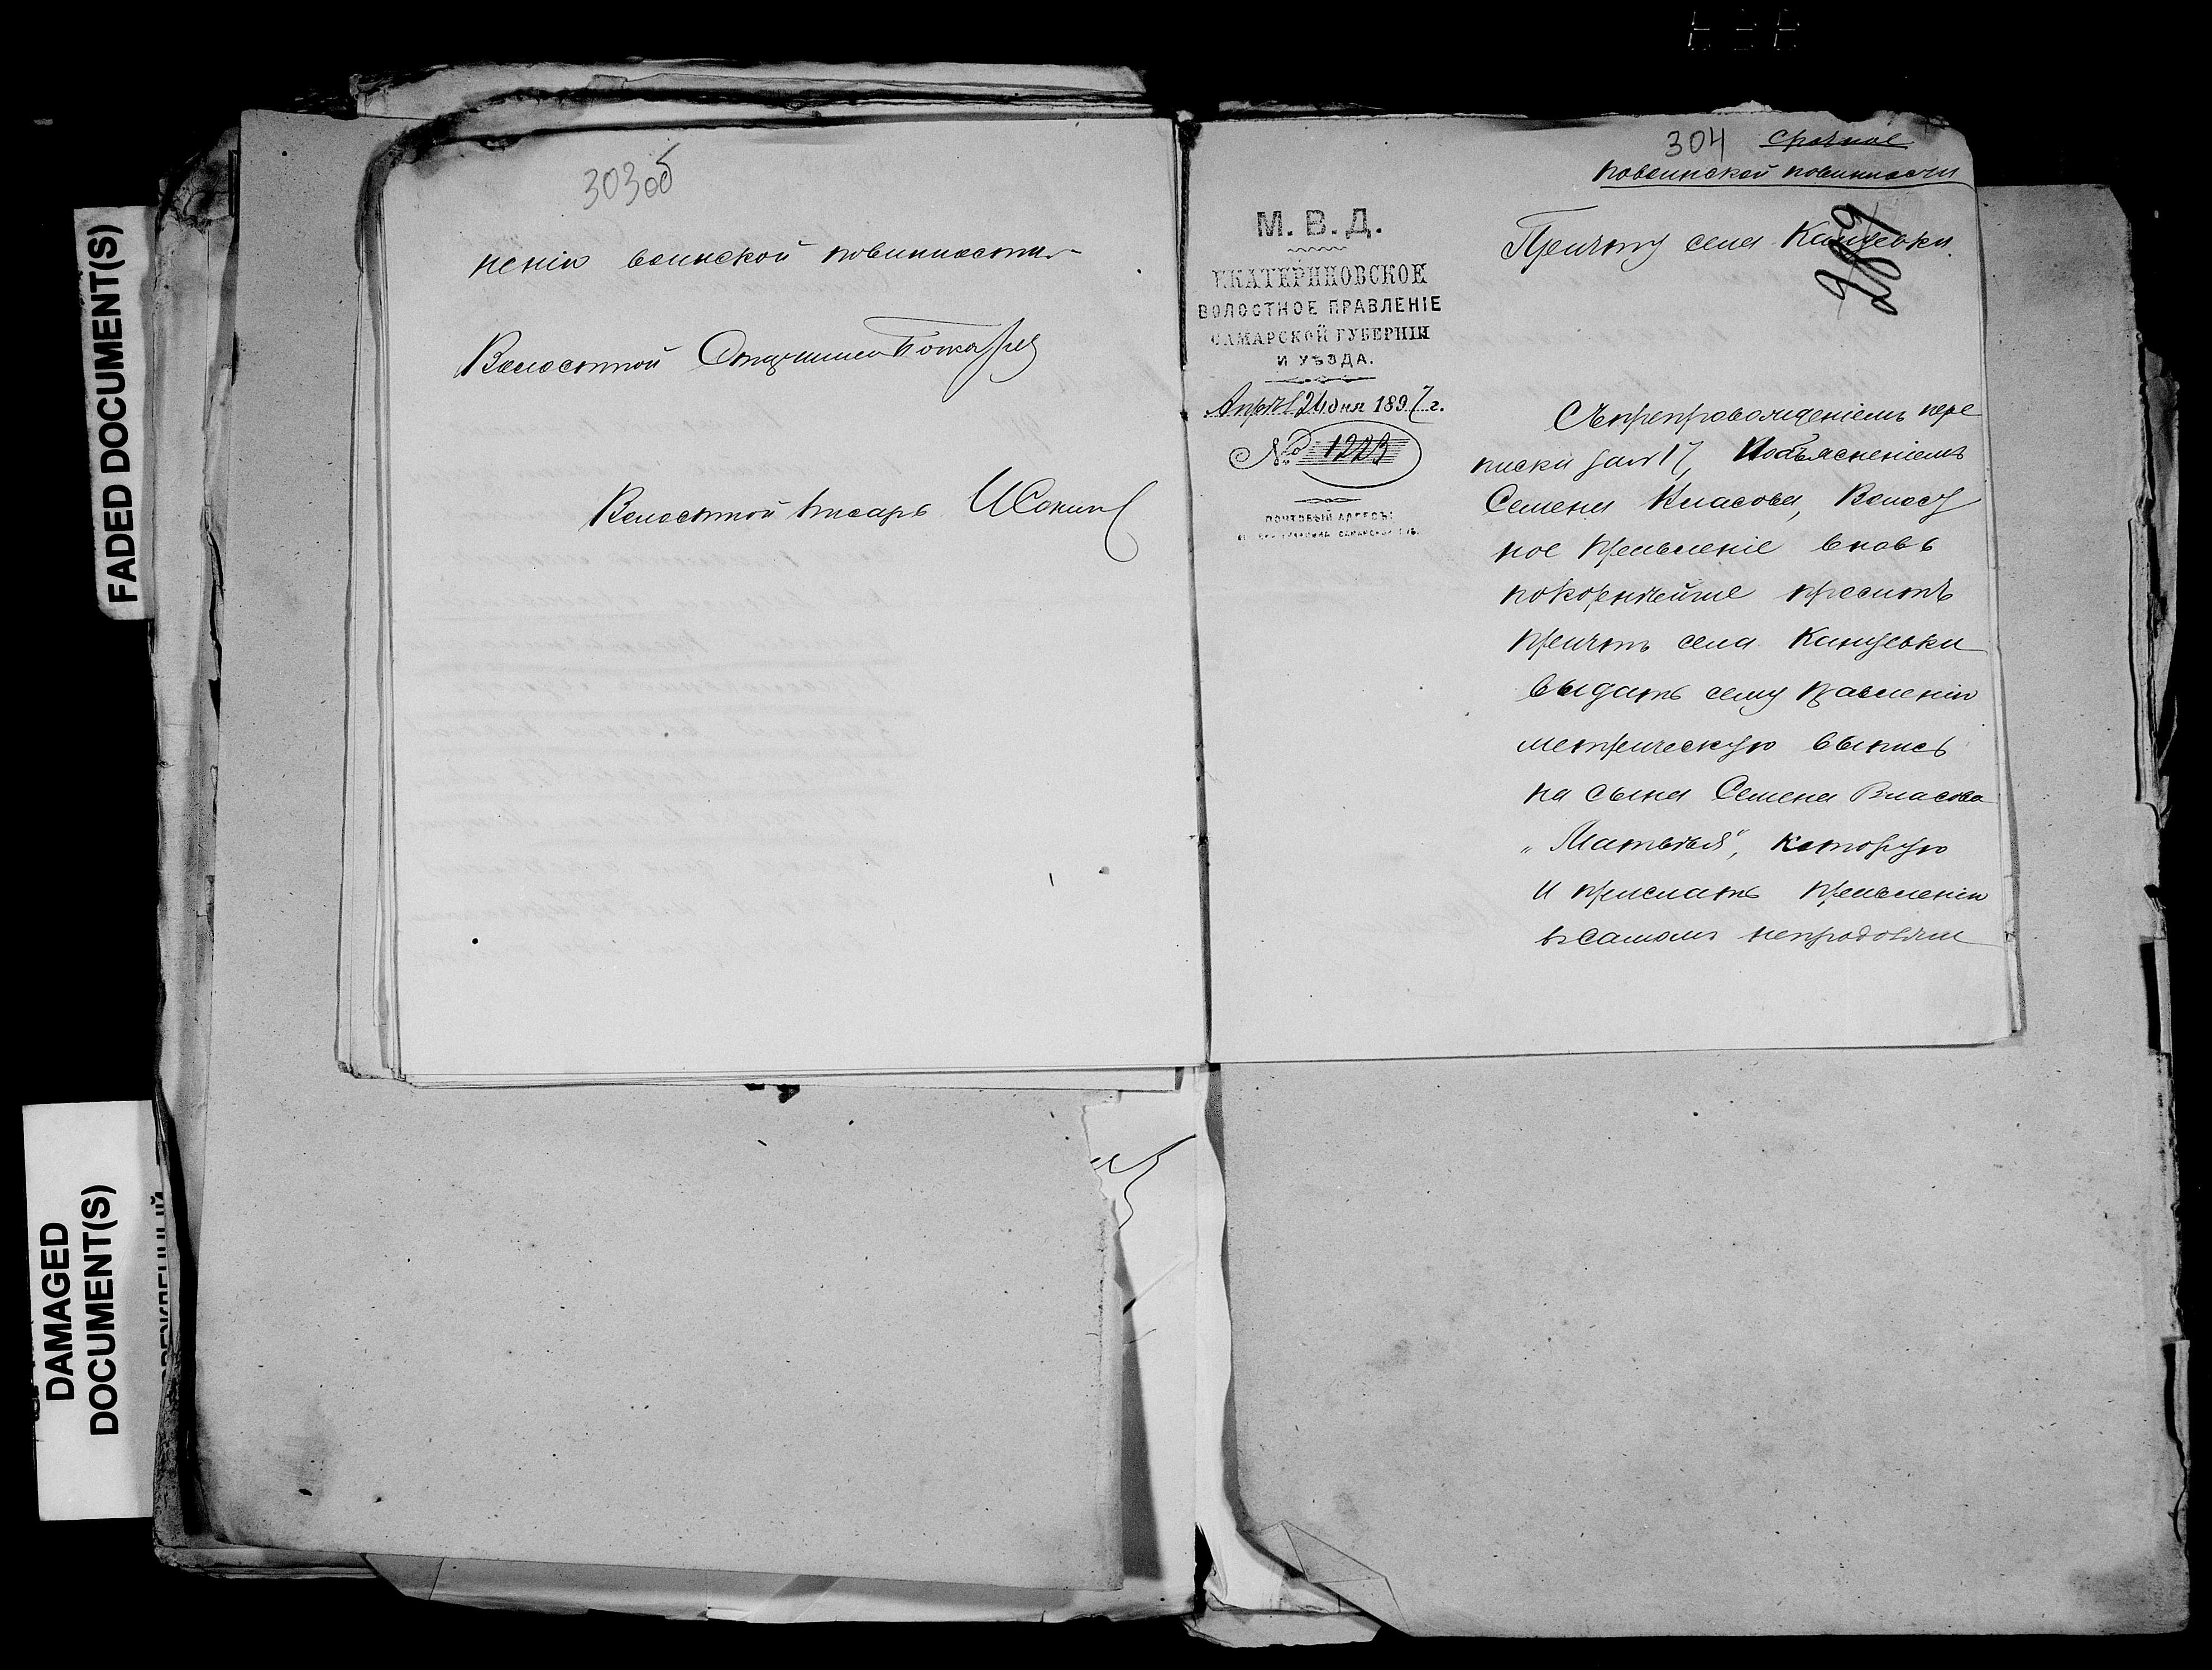 FADED DOCUMENT(S)
DAMAGED
DOCUMENT(S)
303об
ненію воинской повинности.
Волостной Старшина
Волостной писарь
304 срочное
по воинской повинности
289
М. В. Д.
ЕКАТЕРИНОВСКОЕ
ВОЛОСТНОЕ ПРАВЛЕНІЕ
САМАРСКОЙ ГУБЕРНІИ
И УѢЗДА.
Апрѣля 24 дня 1897 г.
№ 1223
ПОЧТОВЫЙ АДРЕСЪ:
Причту села Канцевки.
Съ препровожденіемъ пере
писки и объясненіемъ
Семена Власова, Волост
ное Правленіе вновь
покорнѣйше проситъ
причтъ села Канцевки
выдать сему Правленію
метрическую выпись
на сына Семена Власова
„Матвѣя", которую
и прислать Правленію
въ самомъ непродолжи